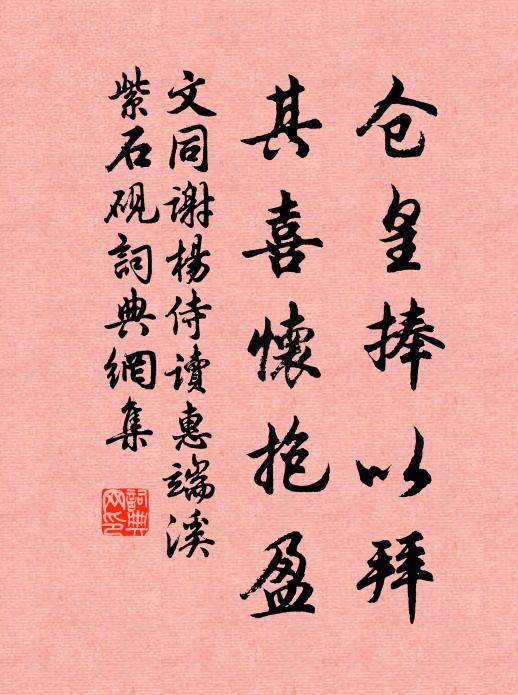 仓皇捧以拜
其喜懷抱盈
文同謝楊侍讀惠端溪
紫石硯詞典網集
詞典
网印